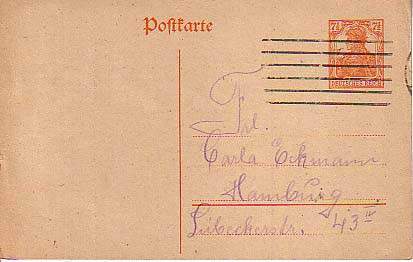 Postkarte
7½ 7½
DEUTSCHES REICH
Frl.
Carla Eckmann
Hamburg
Lübeckerstr. 43 IV